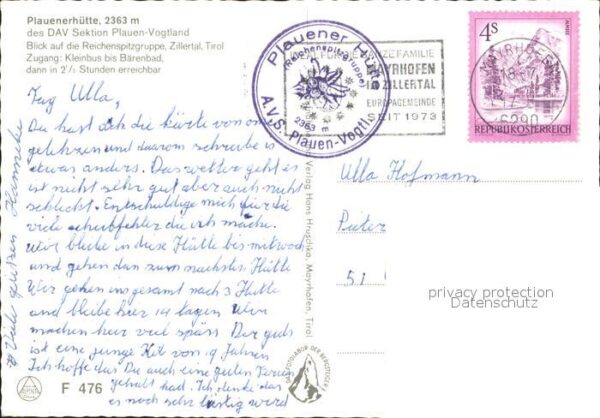 Plauenerhütte, 2363 m
des DAV Sektion Plauen-Vogtland
Blick auf die Reichenspitzgruppe, Zillertal, Tirol
Zugang: Kleinbus bis Bärenbad,
dann in 2½ Stunden erreichbar
Plauener Hütte
(Reichenspitzgruppe)
2363 m
A.V.S. Plauen-Vogtl.
FAMILIE
MAYRHOFEN
ZILLERTAL
EUROPAGEMEINDE
SEIT 1973
6290
4S
REPUBLIK ÖSTERREICH
Tag Ulla,
Du hast dich die karte von
gelehren und darom schreibe is
etwas anders. Das wetter geht es
ist nicht sehr gut aber auch nicht
schlecht. Entschuldige mich für die
viele schribfehler die ich mache.
Wir bleibe in diese Hütte bis mitwoch
und gehen dan zum nachsten Hütte
Wir gehen ins gesamt nach 3 Hütte
und bleibe hier 14 tagen Wir
machen hier viel späss Der
ist eine junge von 19 Jahren
Ich hoffe das Du auch eine guten Ferien
gehabt had. Ich denke das
es noch sehr lüstig wird
Viele grüssen Hanneke
Ulla Hofmann
Pieter
51
Verlag Hans Hruschka, Mayrhofen, Tirol
privacy protection
Datenschutz
F 476